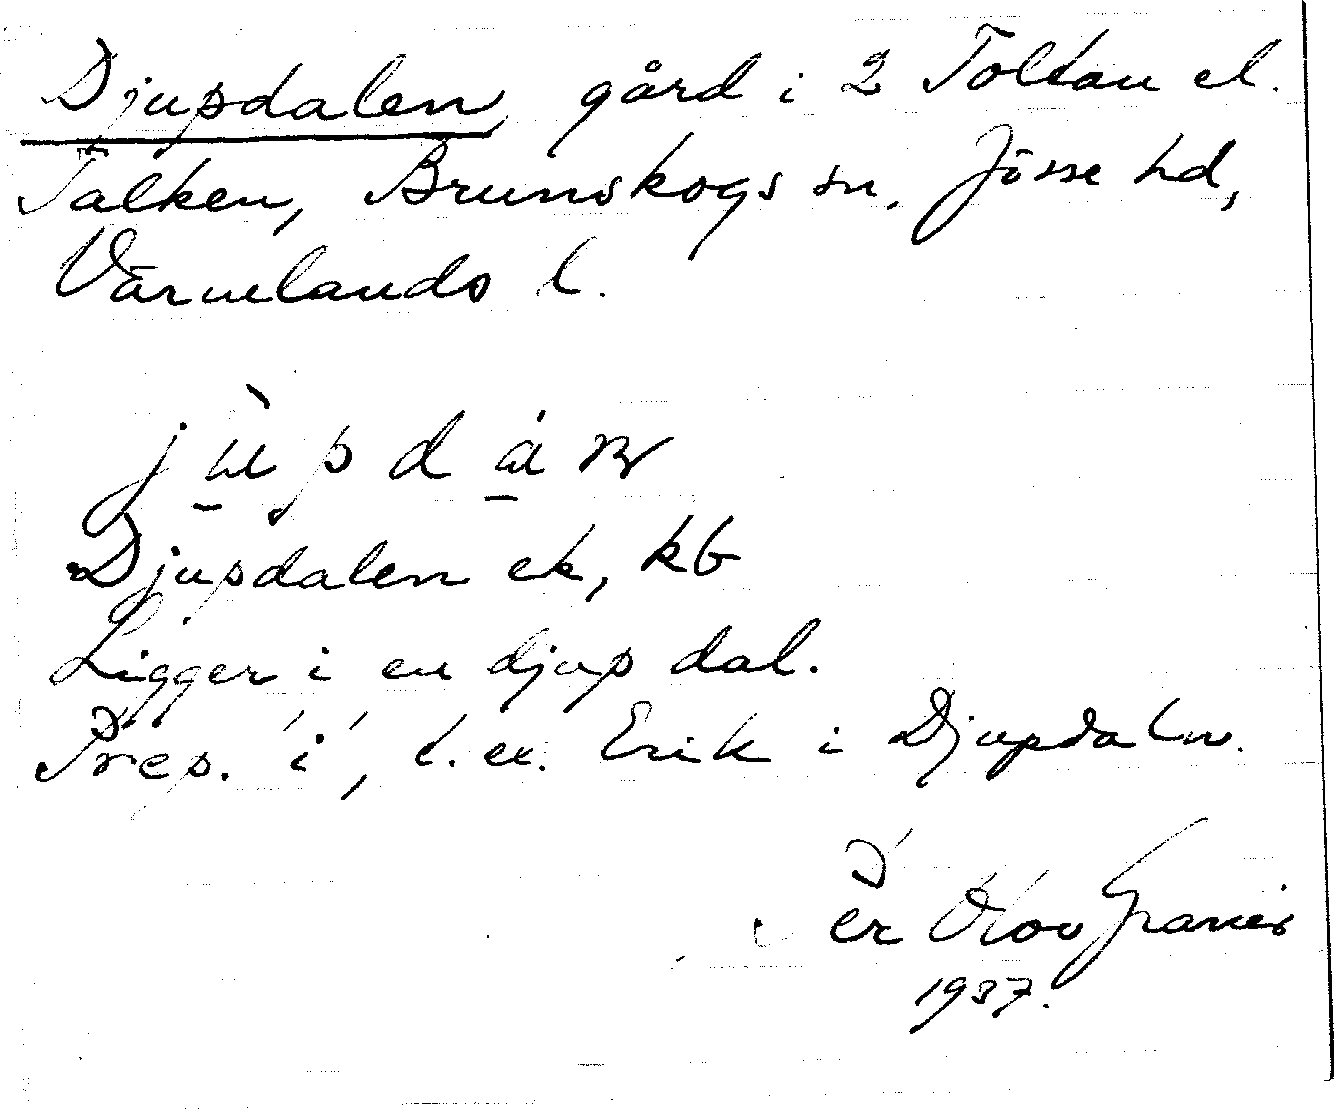 Djupdalen, gård i 2 Toltan el.
Talken, Brunskogs sn. Jösse hd,
Värmelands l.
Djupdalen ek, kb
Ligger i en djup dal.
Prep. 'i', t. ex. Erik i Djupdaln.
Per Olov Granér
1937.